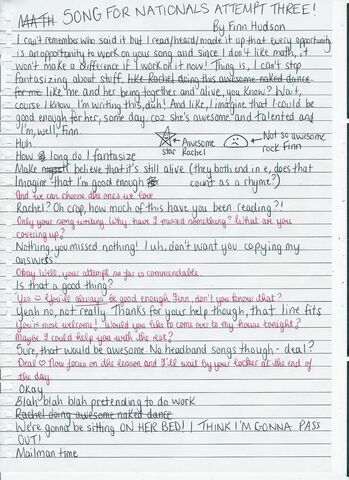 MATH SONG FOR NATIONALS ATTEMPT THREE!
By Finn Hudson
I can't remember who said it but I read/heard/made it up that every opportunity
is an opportunity to work on your song and since I don't like math, it
won't make a difference if I work on it now! Thing is, I can't stop
fantasizing about stuff, like Rachel doing this awesome naked dance
for me like me and her being together and alive, you know? Wait,
course I know I'm writing this, duh! And like, I imagine that I could be
good enough for her, some day, coz she's awesome and talented and
I'm, well, Finn.
Huh.
Awesome
star Rachel
Not so awesome
rock Finn
How long do I fantasize
Make believe that it's still alive (they both end in e, does that
count as a rhyme?)
Imagine that I'm good enough
And we can choose the ones we love
Rachel? Oh crap, how much of this have you been reading?!
Only your song writing. Why, have I missed something? What are you
covering up?
Nothing, you missed nothing! I uh, don't want you copying my
answers.
Okay. Well, your attempt so far is commendable.
Is that a good thing?
Yes You're always be good enough Finn, don't you know that?
Yeah no, not really. Thanks for your help though, that line fits
You're most welcome! Would you like to come over to my house tonight?
Maybe I could help you with the rest?
Sure, that would be awesome. No headband songs though - deal?
Deal ♡ Now focus on the lesson and I'll wait by your locker at the end of
the day.
Okay
Blah blah blah pretending to do work
Rachel doing awesome naked dance
We're gonna be sitting ON HER BED! I THINK I'M GONNA PASS
OUT!
Mailman time